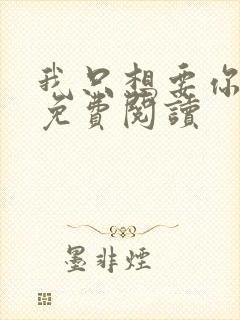 我只想要你
免費閱讀
墨非煙